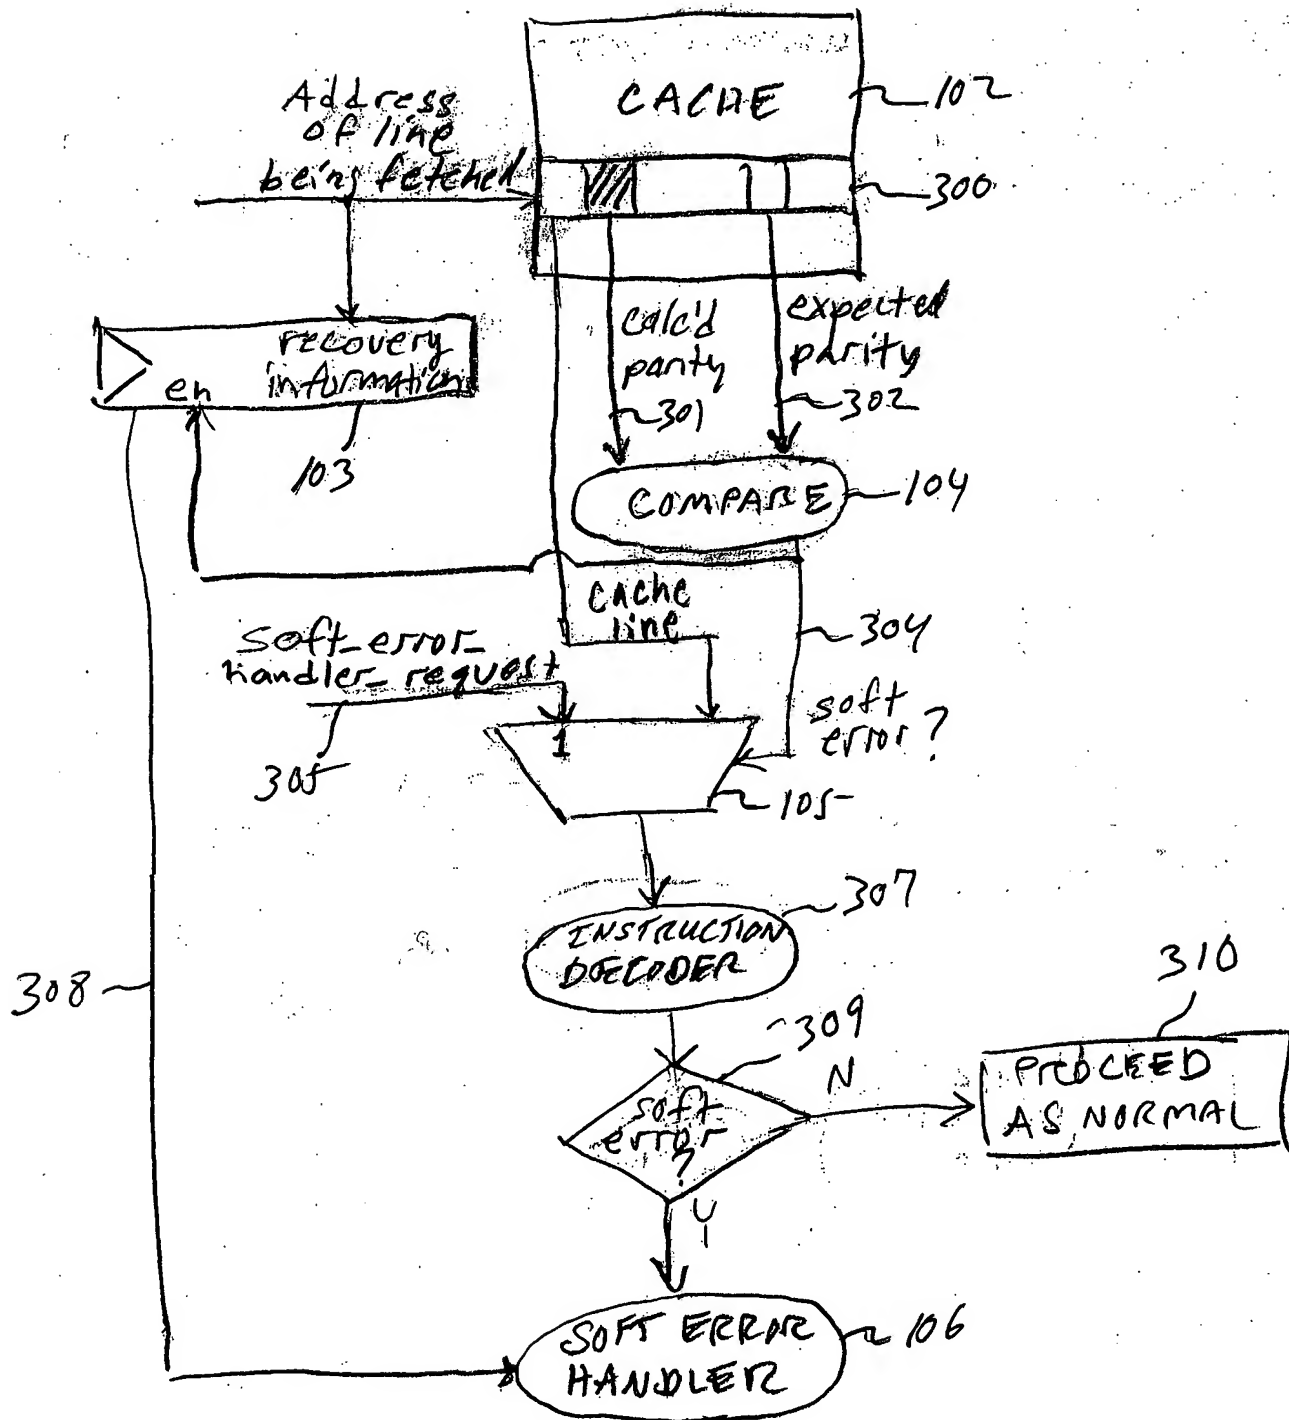 CACHE
102
Address
of line
being fetched
300
calc'd
parity
301
expected
parity
302
recovery
information
en
103
COMPARE
104
cache
line
304
soft_error_
handler_request
305
soft
error?
1
105
INSTRUCTION
DECODER
307
308
309
soft
error
?
N
310
PROCEED
AS NORMAL
Y
SOFT ERROR
HANDLER
106